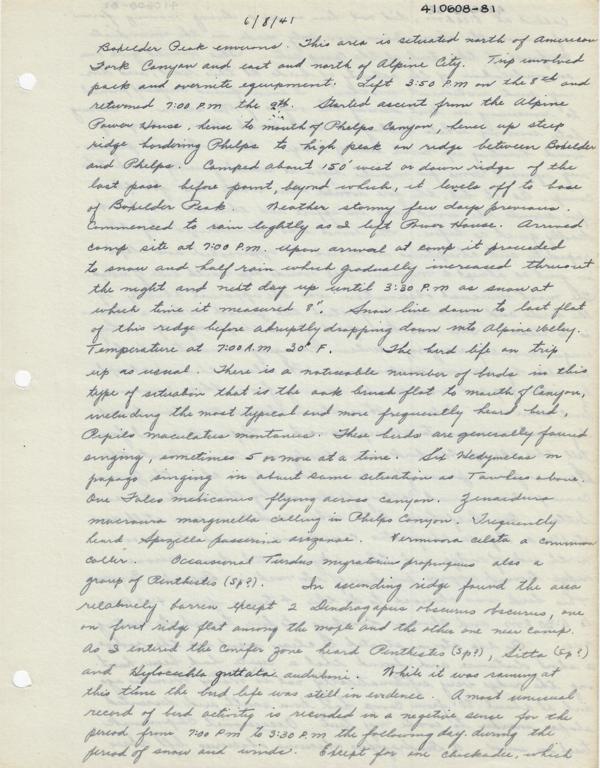 410608-81
6/8/41
Boxelder Peak environs. This area is situated north of American
Fork Canyon and east and north of Alpine City. Trip involved
pack and overnite equipment. Left 3:50 P.M on the 8th and
returned 7:00 P.M the 9th. Started ascent from the Alpine
Power House, hence to mouth of Phelps Canyon, hence up steep
ridge bordering Phelps to high peak on ridge between Boxelder
and Phelps. Camped about 150' west or down ridge of the
last pass before point, beyond which, it levels off to base
of Boxelder Peak. Weather stormy few days previous.
Commenced to rain lightly as I left Power House. Arrived
camp site at 7:00 P.M. Upon arrival at camp it proceeded
to snow and half rain which gradually increased thruout
the night and next day up until 3:30 P.M as snow at
which time it measured 8". Snow line down to last flat
of this ridge before abruptly dropping down into Alpine Valley.
Temperature at 7:00 A.M 30° F. The bird life on trip
up as usual. There is a noticeable number of birds in this
type of situation that is the oak brush flat to mouth of Canyon,
including the most typical and more frequently heard bird,
Pipilo maculatus montanus. These birds are generally found
singing, sometimes 5 or more at a time. Six Hedymeles m
papago singing in about same situation as Towhees above.
One Falco mexicanus flying across canyon. Zenaidura
macroura marginella calling in Phelps Canyon. Frequently
heard Spizella passerina arizonae. Vermivora celata a common
caller. Occasional Turdus migratorius propinquus also a
group of Penthestes (Sp?). In ascending ridge found the area
relatively barren except 2 Dendragapus obscurus obscurus, one
on first ridge flat among the maple and the other one near camp.
As I entered the Conifer zone heard Penthestes (Sp?), Sitta (Sp?)
and Hylocichla guttata auduboni. While it was raining at
this time the bird life was still in evidence. A most unusual
record of bird activity is recorded in a negative sense for the
period from 7:00 P.M to 3:30 P.M the following day during the
period of snow and winds. Except for one chickadee, which